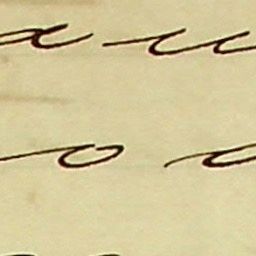 a u
o o